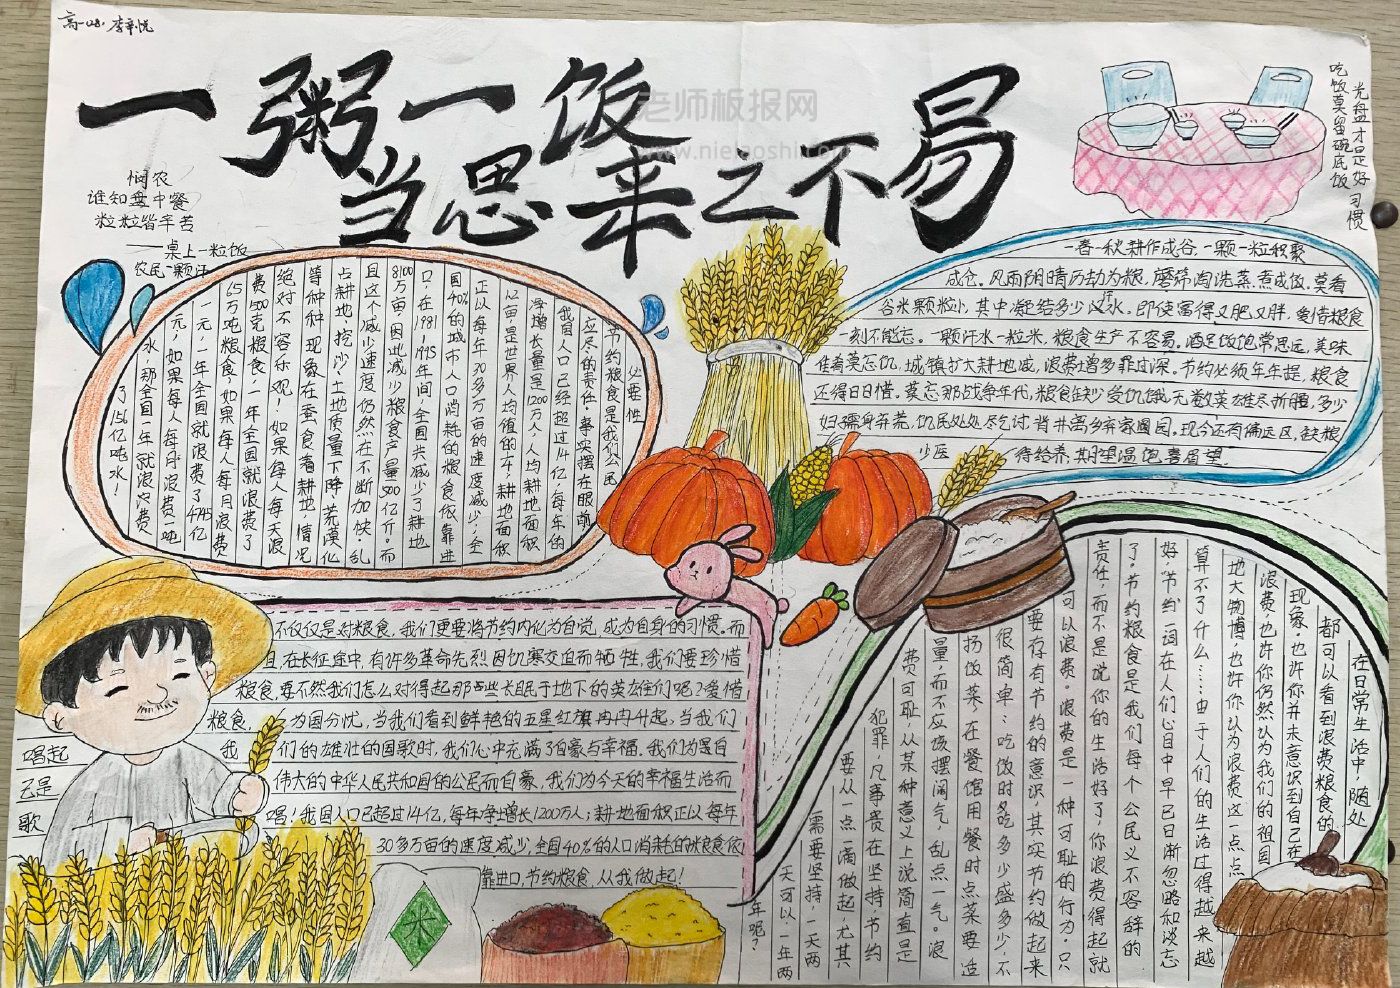 高一08. 李辛悦
一粥一饭
当思来之不易
老师板报网
悯农
谁知盘中餐
粒粒皆辛苦
——桌上一粒饭
农民一颗汗
光盘才是好习惯
吃饭莫留碗底饭
必要性
节约粮食是我们公民
应尽的责任.事实摆在眼前
我目人口已经超过14亿,每年的
净增长量是1200万人,人均耕地面积
1.2亩,是世界人均值的1/4,耕地面积
正以每年30多万亩的速度减少,全
国40%的城市人口消耗的粮食依靠进
口.在1981,1995年间,全国共减少了耕地
8100万亩,因此减少粮食产量500亿斤.而
且这个减少速度仍然在不断加快,乱
点耕地,挖沙,土地质量下降,荒漠化
等种种现象在蚕食着耕地,情况
绝对不容乐观!如果每人每天浪
费150克粮食,一年全国就浪费了
65万吨粮食,如果每人每月浪费
一元,一年全国就浪费了4745亿
元,如果每人每月浪费一吨
水,那全国一年就浪费
了156亿吨水!
一春一秋耕作成谷,一颗一粒积聚
成仓。风雨阴晴历劫为粮,磨筛淘洗蒸煮成饭。莫看
谷米颗粒小,其中凝结多少汗水。即使富得又肥又胖,爱惜粮食
一刻不能忘。一颗汗水一粒米,粮食生产不容易。酒足饭饱常思远,美味
佳肴莫忘饥。城镇扩大耕地减,浪费增多罪过深。节约必须年年提,粮食
还得日日惜。莫忘那战争年代,粮食缺少受饥饿。无数英雄尽折腰,多少
妇孺身弃荒。饥民处处尽乞讨,背井离乡弃家园。现今还有偏远区,缺粮
少医 待给养;期望温饱喜眉望.
不仅仅是对粮食,我们更要将节约内化为自觉,成为自身的习惯。而
且,在长征途中,有许多革命先烈因饥寒交迫而牺牲,我们要珍惜
粮食,要不然我们怎么对得起那些长眠于地下的英雄们呢?爱惜
粮食, 为国分忧,当我们看到鲜艳的五星红旗冉冉升起,当我们
唱起 我 们的雄壮的国歌时,我们心中充满了自豪与幸福,我们为是自
己是 伟大的中华人民共和国的公民而自豪,我们为今天的幸福生活而
歌 唱!我国人口已超过14亿,每年净增长1200万人;耕地面积正以每年
30多万亩的速度减少,全国40%的人口消耗的粮食依
靠进口,节约粮食,从我做起!
米
在日常生活中,随处
都可以看到浪费粮食的
现象.也许你并未意识到自己在
浪费,也许你仍然认为我们的祖国
地大物博,也许你认为浪费这一点点
算不了什么……由于人们的生活过得越来越
好,"节约"一词在人们心目中早已日渐忽略和淡忘
了。节约粮食是我们每个公民义不容辞的
责任,而不是说你的生活好了,你浪费得起就
可以浪费。浪费是一种可耻的行为.只
要存有节约的意识,其实节约做起来
很简单:吃饭时各吃多少盛多少,不
扔饭菜;在餐馆用餐时点菜要适
量,而不应该摆阔气,乱点一气。浪
费可耻,从某种意义上说简直是
犯罪,凡事贵在坚持,节约
要从一点一滴做起,尤其
需要坚持,一天两
天可以,一年两
年呢?